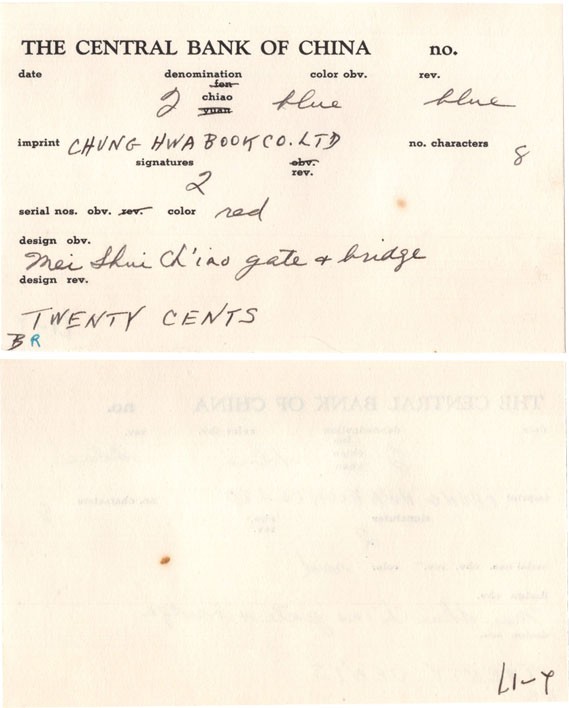 THE CENTRAL BANK OF CHINA no.
date denomination color obv. rev.
fen
2 chiao blue blue
yuan
imprint CHUNG HWA BOOK CO. LTD no. characters 8
signatures obv.
2 rev.
serial nos. obv. rev. color red
design obv.
Mei Shui Ch'iao gate & bridge
design rev.
TWENTY CENTS
BR
L1-4